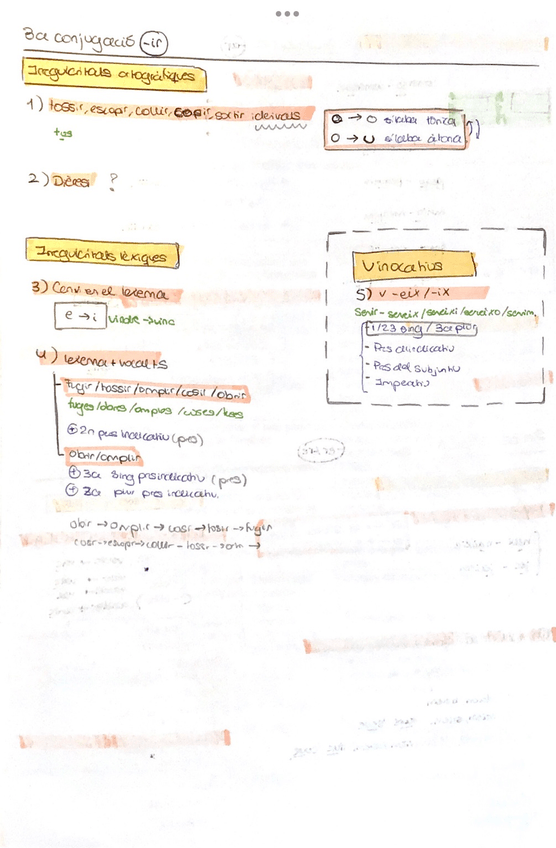 3a conjugació -ir
Irregularitats ortogràfiques
1) tossir, escopir, collir, cosir, sortir i derivats
tus
o → o síl·laba tònica
o → u síl·laba àtona
2) Dièresi ?
Irregularitats lèxiques
3) Canvi en el lexema
e → i
4) lexema + vocal + s
Fugir/tossir/omplir/cosir/obrir
+ 2n pers indicatiu (pres)
Obrir/omplir
+ 3a sing pres indicatiu (pres)
+ 3a plur pres indicatiu.
obrir → omplir → cosir → tossir → fugir
cosir → escopir → collir - tossir →
5) v -eix/-ix
Servir - serveix / serveixi / serveixo / servim
1/2/3 sing / 3a plur
- Pres d'indicatiu
- Pres del subjuntiu
- Imperatiu